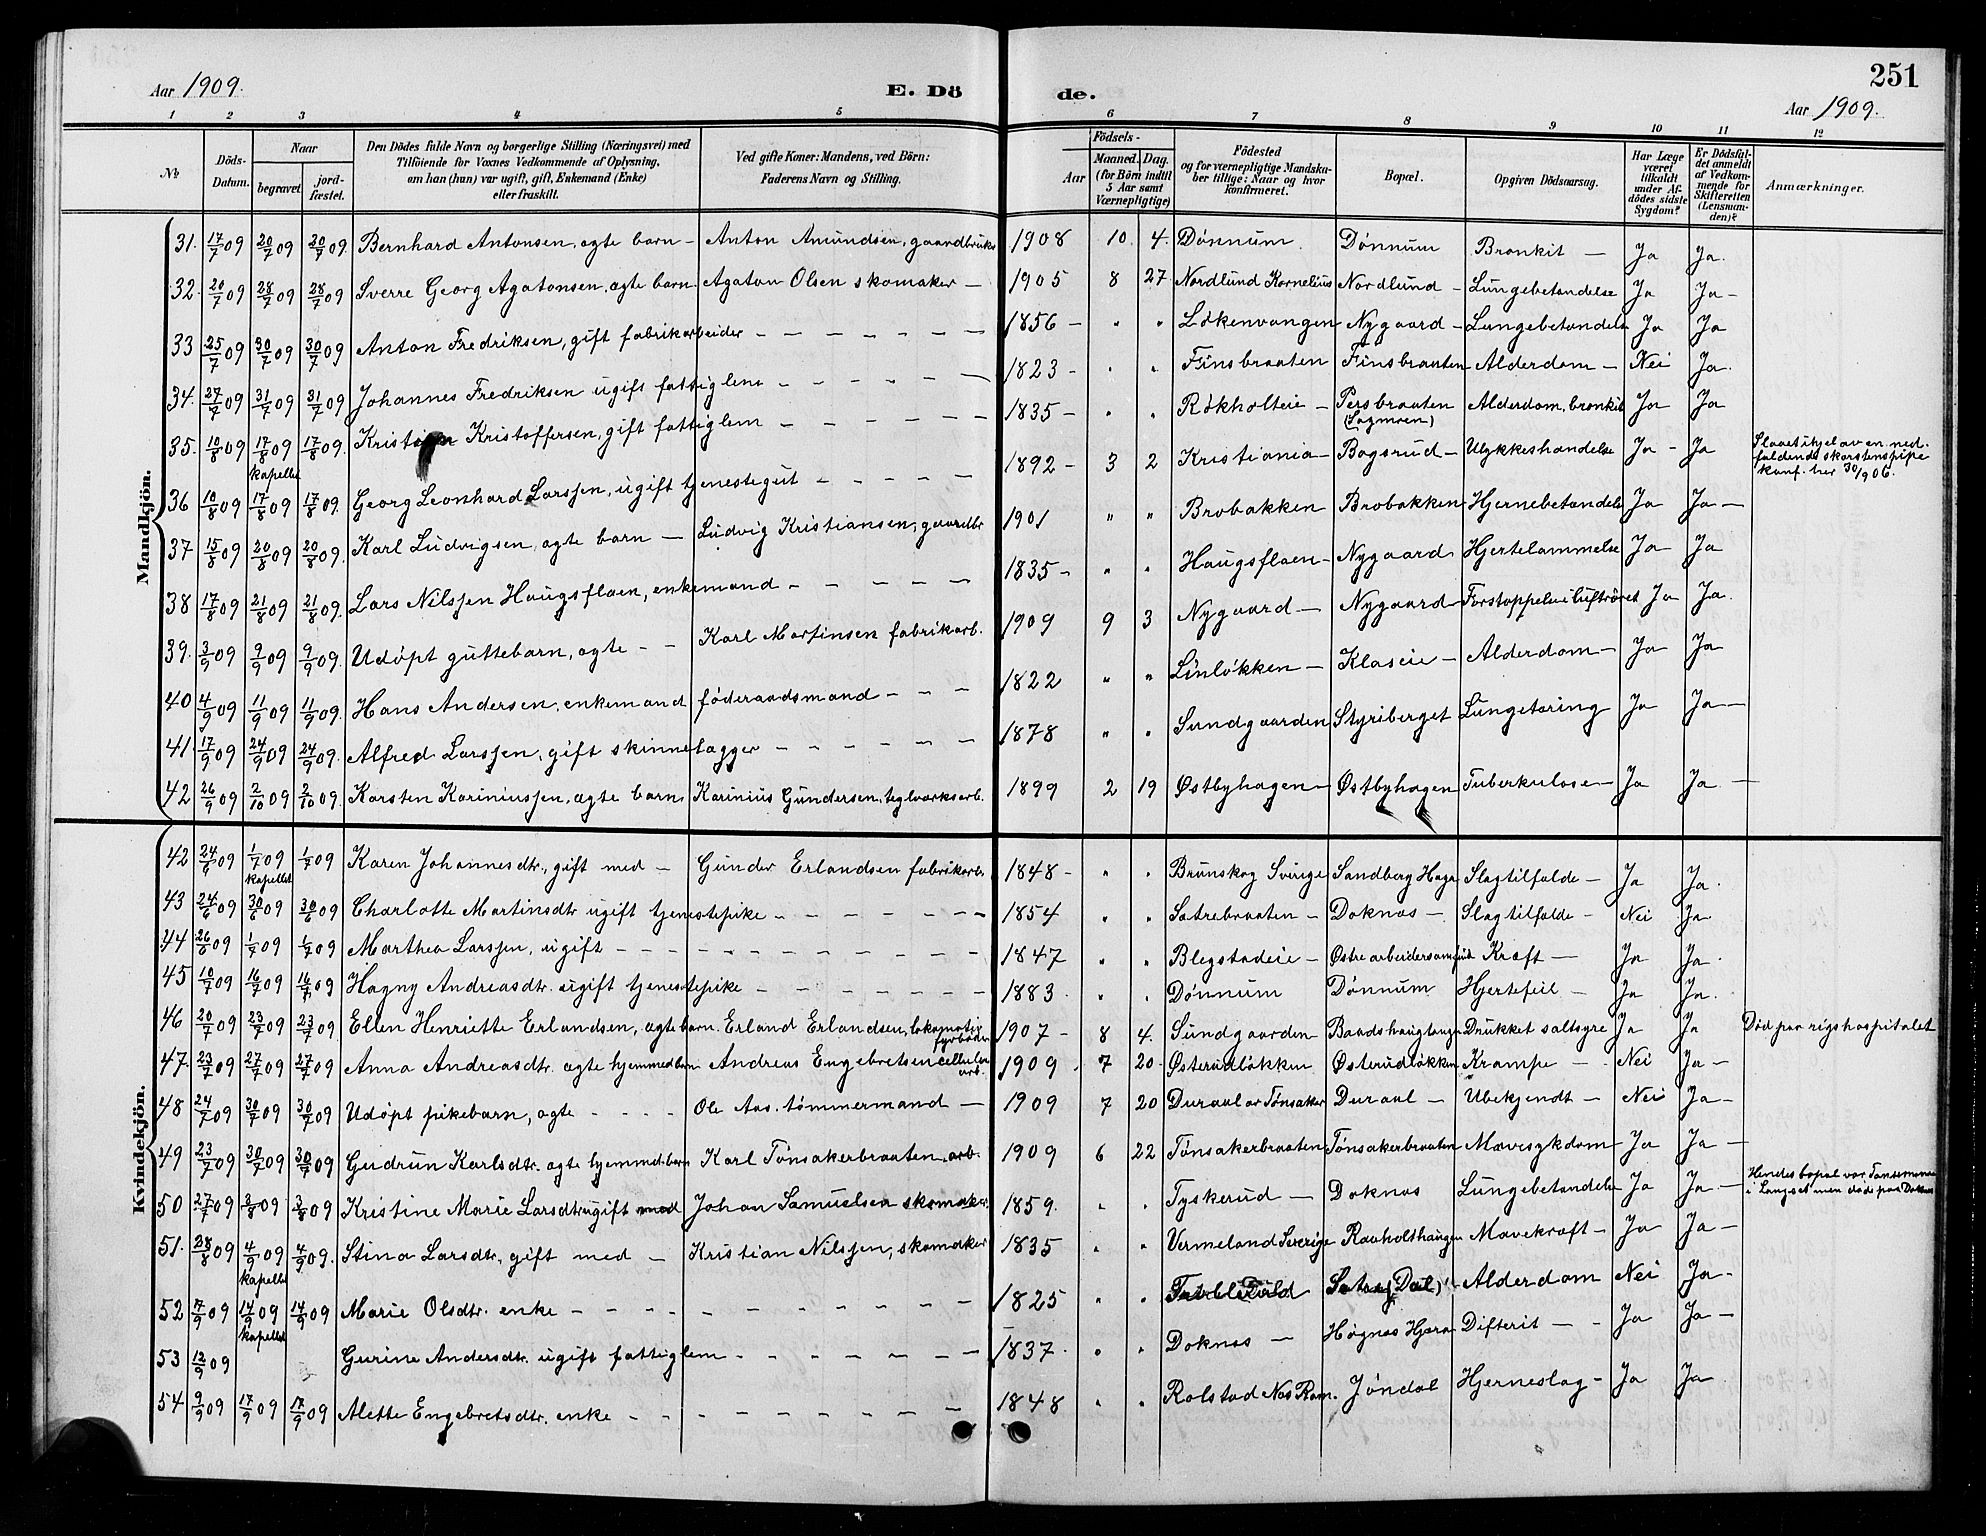 Aar 1909. E. Dö de. 251
Aar 1909.
1 2 3 4 5 6 7 8 9 10 11 12
№ Döds-Datum. Naar begravet. jordfæstet. Den Dödes fulde Navn og borgerlige Stilling (Næringsvei) med Tilföiende for Voxnes Vedkommende af Oplysning, om han (hun) var ugift, gift, Enkemand (Enke) eller fraskilt. Ved gifte Koner: Mandens, ved Börn: Faderens Navn og Stilling. Födsels- Aar Maaned. Dag. (for Börn indtil 5 Aar samt Værnepligtige) Födested og for værnepligtige Mandskaber tillige: Naar og hvor konfirmeret. Bopæl. Opgiven Dödsaarsag. Har Læge været tilkaldt under Afdödes sidste Sygdom? Er Dödsfaldet anmeldt af Vedkommende for Skifteretten (Lensmanden)? Anmærkninger.
Mandkjön.
31. 17/7 09 20/7 09 20/7 09. Bernhard Antonsen, ægte barn – Anton Amundsen, gaardbruker 1908 10. 4. Dønnum Dønnum Bronkit – Ja Ja.
32. 20/7 09 28/7 09 28/7 09 Sverre Georg Agatonsen, ægte barn Agaton Olsen skomaker – 1905 8 27 Nordlund Kornelius Nordlund – Lungebetændelse Ja Ja –
33 25/7 09 30/7 09 30/7 09 Anton Fredriksen, gift fabrikarbeider – – – – – – – 1856 – " " Løkenvangen Nygaard – Lungebetændelse Ja Ja
34. 27/7 09 31/7 09 31/7 09 Johannes Fredriksen ugift fattiglem – – – – – – 1823 – " " Finsbraaten Finsbraaten – Alderdom – Nei Ja.
35. 10/8 09 17/8 09 kapellet 17/8 09. Kristian Kristoffersen, gift fattiglem – – – – – – 1835 – " " Røkholteie – Persbraaten (Sagmoen) Alderdom, bronkit Ja Ja
36 10/8 09 17/8 09 17/8 09. Georg Leonhard Larssen, ugift tjenestegut – – – – – 1892 – 3 2 Kristiania – Bagsrud – Ulykkeshændelse Ja – Ja Slaaet ihjel av en nedfaldende skorstenspipe konf. her 30/9 06.
37 15/8 09 20/8 09 20/8 09. Karl Ludvigsen, ægte barn – Ludvig Kristiansen, gaardbr 1901 " " Brobakken Brobakken Hjernebetændelse Ja Ja –
38 17/8 09 21/8 09 21/8 09. Lars Nilssen Haugsflaen, enkemand – – – – – – 1835 – " " Haugsflaen – Nygaard Hjertelammelse Ja Ja
39. 3/9 09 9/9 09 9/9 09. Udøpt guttebarn, ægte – – Karl Martinsen fabrikarb. 1909 9 3 Nygaard – Nygaard – Forstoppelse i luftrøret Ja Ja.
40 4/9 09 11/9 09 11/9 09. Hans Andersen, enkemand føderaadsmand – – – 1822 " " Linløkken – Klaseie – Alderdom – Ja Ja
41 17/9 09 24/9 09 24/9 09. Alfred Larssen, gift skinnelægger – – – – – – 1878 " " Sundgaarden Styriberget Lungetæring Ja Ja –
42 26/9 09 2/10 09 2/10 09. Karsten Kariniussen, ægte barn Karinius Gundersen, teglverksarb. 1899 2 19 Østbyhagen – Østbyhagen Tuberkulose – Ja Ja –
Kvindekjön.
42 24/6 09 1/7 09 kapellet 1/7 09 Karen Johannesdtr., gift med – Gunder Erlandsen fabrikarb. 1848 – " " Brunskog Sverige Sandberg Haga Slagtilfælde – Ja Ja.
43 24/6 09 30/6 09 30/6 09 Charlotte Martinsdtr ugift tjenestepike – – – – – – – 1854 " " Sætrebraaten – Doknæs – Slagtilfælde – Nei Ja
44 26/6 09 1/7 09 1/7 09 Marthea Larssen, ugift – – – – – – – – – 1847 " " Blegstadeie – Østre arbeidersamfund Kræft – Ja Ja.
45 10/7 09 16/7 09 16/7 09 Hagny Andreasdtr. ugift tjenestepike – – – – – – – 1883 " " Dønnum Dønnum Hjertefeil – Ja Ja.
46 20/7 09 23/7 09 23/7 09. Ellen Henriette Erlandsen, ægte barn. Erland Erlandsen, lokomotiv fyrbøder 1907 – 8 4. Sundgaarden Baadshaugtangen Drukket saltsyre Ja Ja Død paa rigshospitalet
47. 23/7 09 27/7 09 27/7 09. Anna Andreasdtr. ægte hjemmedøbt Andreas Engebretsen cellulose arb. 1909. 7 20. Østerudløkken Østerudløkken Krampe – – Nei Ja –
48 24/7 09 30/7 09 30/7 09 Udøpt pikebarn, ægte – – – – Ole Aas. tømmermand – 1909 7 20 Duraal av Tønsaker Duraal – Ubekjendt – Nei Ja –
49 23/7 09 30/7 09 30/7 09 Gudrun Karlsdtr. ægte hjemmedøbt Karl Tønsakerbraaten, arb. 1909 6 22 Tønsakerbraaten Tønsakerbraaten Mavesykdom – Ja Ja –
50 27/7 09 3/8 09 3/8 09 Kristine Marie Larsdtr ugift med Johan Samuelsen skomaker 1859. " " Tyskerud – Doknæs Lungebetændelse Ja Ja – Hendes bopæl var i Langset men døde paa Doknæs
51. 28/8 09 4/9 09 kapellet 4/9 09. Stina Larsdtr, gift med – Kristian Nilssen, skomaker 1835 " " Vermeland Sverige Ravholthaugen Mavekræft – Ja Ja –
52 7/9 09 14/9 09 kapellet 14/9 09 Marie Olsdtr. enke – – – – – – – – – – – 1825 " " Alderdom Nei Ja –
53 13/9 09 Gurine Andersdtr. ugift fattiglem – – – – – – – 1837 " " Doknæs – Høgnæs Hjera Difterit – – Ja Ja –
54 9/9 09 17/9 09 17/9 09 Alette Engebretsdtr. enke – – – – – – – – – 1848 " " Rolstad Næs Rom. Jøndal Hjerneslag – Ja Ja